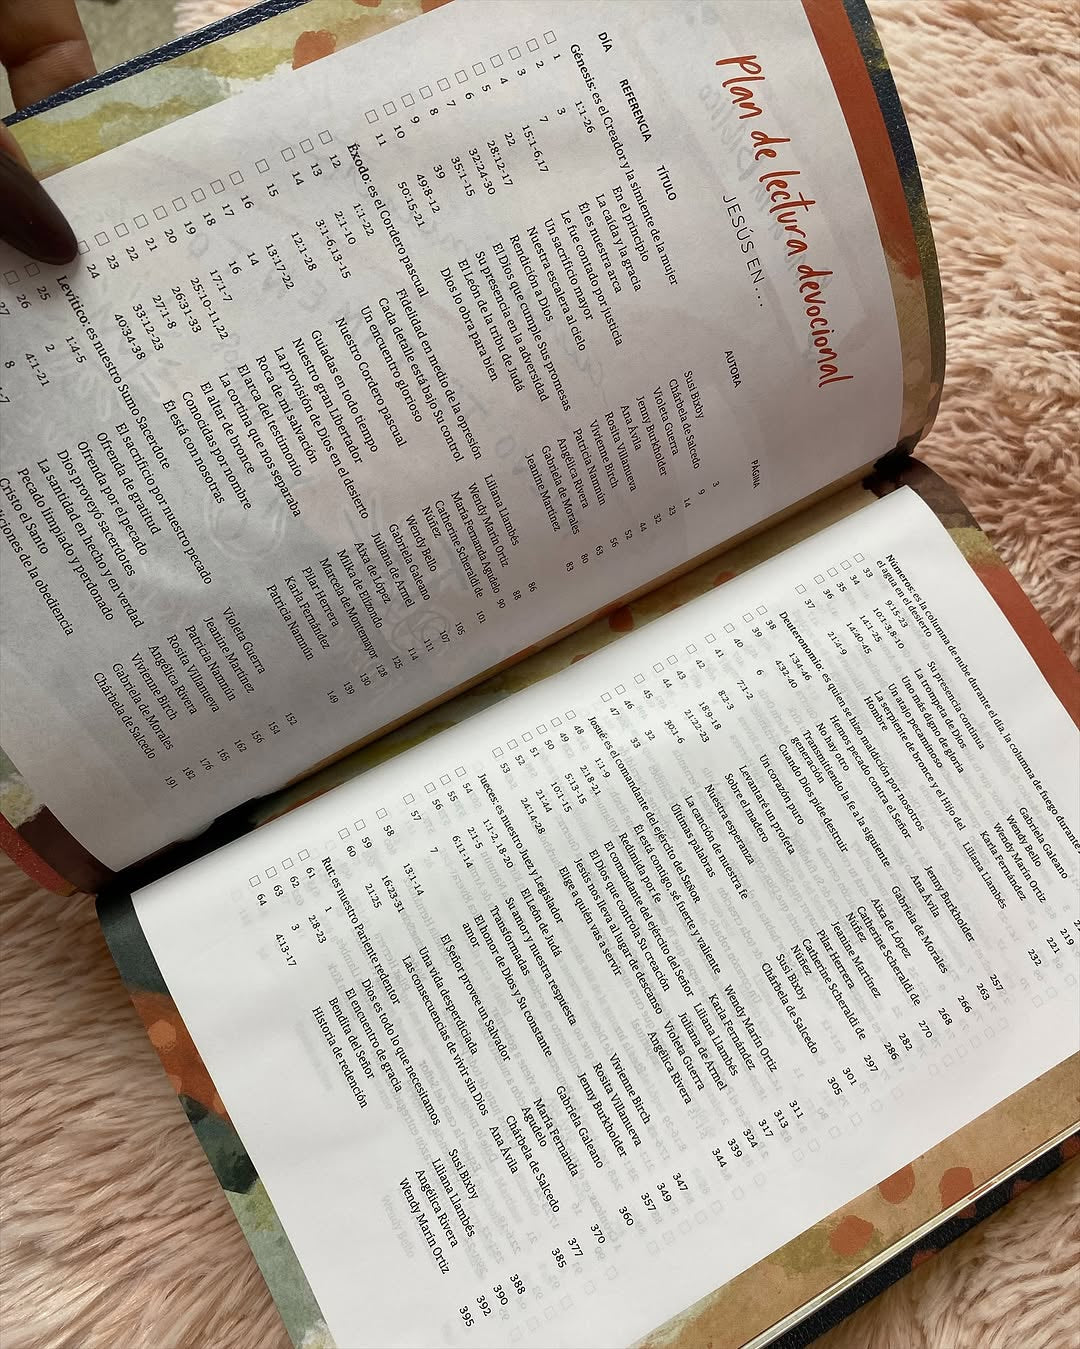 Plan de lectura devocional
JESÚS EN ...
DÍA REFERENCIA TÍTULO AUTORA PÁGINA
Génesis: es el Creador y la simiente de la mujer
1 1:1-26 En el principio Susi Bixby 3
2 3 La caída y la gracia Chárbela de Salcedo 9
3 7 Él es nuestra arca Violeta Guerra 14
4 15:1-6,17 Le fue contado por justicia Jenny Burkholder 23
5 22 Un sacrificio mayor Ana Ávila 32
6 28:12-17 Nuestra escalera al cielo Rosita Villanueva 44
7 32:24-30 Rendición a Dios Vivienne Birch 52
8 35:1-15 El Dios que cumple Sus promesas Patricia Namnún 56
9 39 Su presencia en la adversidad Angélica Rivera 63
10 49:8-12 El León de la tribu de Judá Gabriela de Morales 80
11 50:15-21 Dios lo obra para bien Jeanine Martínez 83
Éxodo: es el Cordero pascual
12 1:1-22 Fidelidad en medio de la opresión Liliana Llambés 86
13 2:1-10 Cada detalle está bajo Su control Wendy Marín Ortiz 88
14 3:1-6,13-15 Un encuentro glorioso María Fernanda Agudelo 90
15 12:1-28 Nuestro Cordero pascual Catherine Scheraldi de
Núñez 101
16 13:17-22 Guiadas en todo tiempo Wendy Bello 105
17 14 Nuestro gran Libertador Gabriela Galeano 107
18 16 La provisión de Dios en el desierto Juliana de Armel 111
19 17:1-7 Roca de mi salvación Aixa de López 114
20 25:10-11,22 El arca del testimonio Mika de Elizondo 125
21 26:31-33 La cortina que nos separaba Marcela de Montemayor 128
22 27:1-8 El altar de bronce Pilar Herrera 130
23 33:12-23 Conocidas por nombre Karla Fernández
24 40:34-38 Él está con nosotras Patricia Namnún 149
Levítico: es nuestro Sumo Sacerdote
25 1:4-5 El sacrificio por nuestro pecado Violeta Guerra 152
26 2 Ofrenda de gratitud Jeanine Martínez 154
27 4:1-21 Ofrenda por el pecado Patricia Namnún 156
8 Dios proveyó sacerdotes Angélica Rivera 162
La santidad en hecho y en verdad Rosita Villanueva 165
Pecado limpiado y perdonado Vivienne Birch 176
Cristo el Santo Gabriela de Morales 182
de la obediencia Chárbela de Salcedo 191
Números: es la columna de nube durante el día, la columna de fuego durante
el agua en el desierto
33 9:15-23 Su presencia continua Gabriela Galeano
34 10:1-3,8-10 La trompeta de Dios Wendy Bello
35 14:1-25 Uno más digno de gloria Wendy Marín Ortiz 219
36 14:40-45 Un atajo pecaminoso Karla Fernández 221
37 21:4-9 La serpiente de bronce y el Hijo del Liliana Llambés 232
Hombre
Deuteronomio: es quien se hizo maldición por nosotros
38 1:34-46 Hemos pecado contra el Señor Jenny Burkholder 257
39 4:32-40 No hay otro Ana Ávila 263
40 6 Transmitiendo la fe a la siguiente Gabriela de Morales 266
generación
41 7:1-2 Cuando Dios pide destruir Aixa de López 268
42 8:2-3 Un corazón puro Catherine Scheraldi de 270
Núñez
43 18:9-18 Levantaré un profeta Jeanine Martínez 282
44 21:22-23 Sobre el madero Pilar Herrera 286
45 30:1-6 Nuestra esperanza Catherine Scheraldi de 297
Núñez
46 32 La canción de nuestra fe Susi Bixby 301
47 33 Últimas palabras Chárbela de Salcedo 305
Josué: es el comandante del ejército del Señor
48 1:1-9 Él está contigo, sé fuerte y valiente Wendy Marín Ortiz 311
49 2:18-21 Redimida por fe Karla Fernández 313
50 5:13-15 El comandante del ejército del Señor Liliana Llambés 317
51 10:1-15 El Dios que controla Su creación Juliana de Armel 324
52 21:44 Jesús nos lleva al lugar de descanso Violeta Guerra 339
53 24:14-28 Elige a quién vas a servir Angélica Rivera 344
Jueces: es nuestro Juez y Legislador
54 1:1-2, 18-20 El León de Judá Vivienne Birch 347
55 2:1-5 Su amor y nuestra respuesta Rosita Villanueva 349
56 6:11-14 Transformadas Jenny Burkholder 357
57 7 El honor de Dios y Su constante Gabriela Galeano 360
amor
58 13:1-14 El Señor provee un Salvador María Fernanda 370
Agudelo
59 16:23-31 Una vida desperdiciada Chárbela de Salcedo 377
60 21:25 Las consecuencias de vivir sin Dios Ana Ávila 385
Rut: es nuestro Pariente redentor
61 1 Dios es todo lo que necesitamos Susi Bixby 388
62 2:8-23 El encuentro de gracia Liliana Llambés 390
63 3 Bendita del Señor Angélica Rivera 392
64 4:13-17 Historia de redención Wendy Marín Ortiz 395